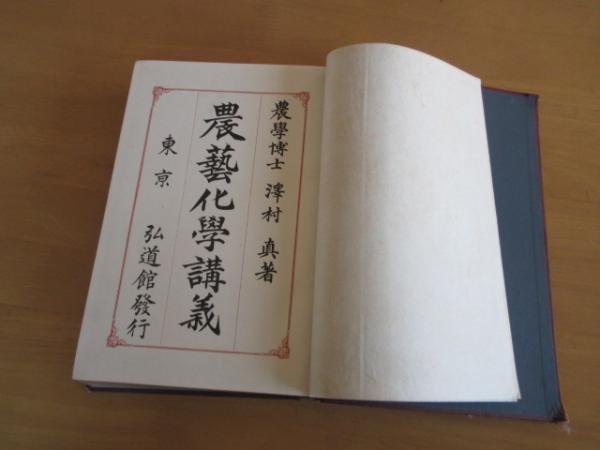 農學博士 澤村 真著
農藝化學講義
東亰 弘道館發行